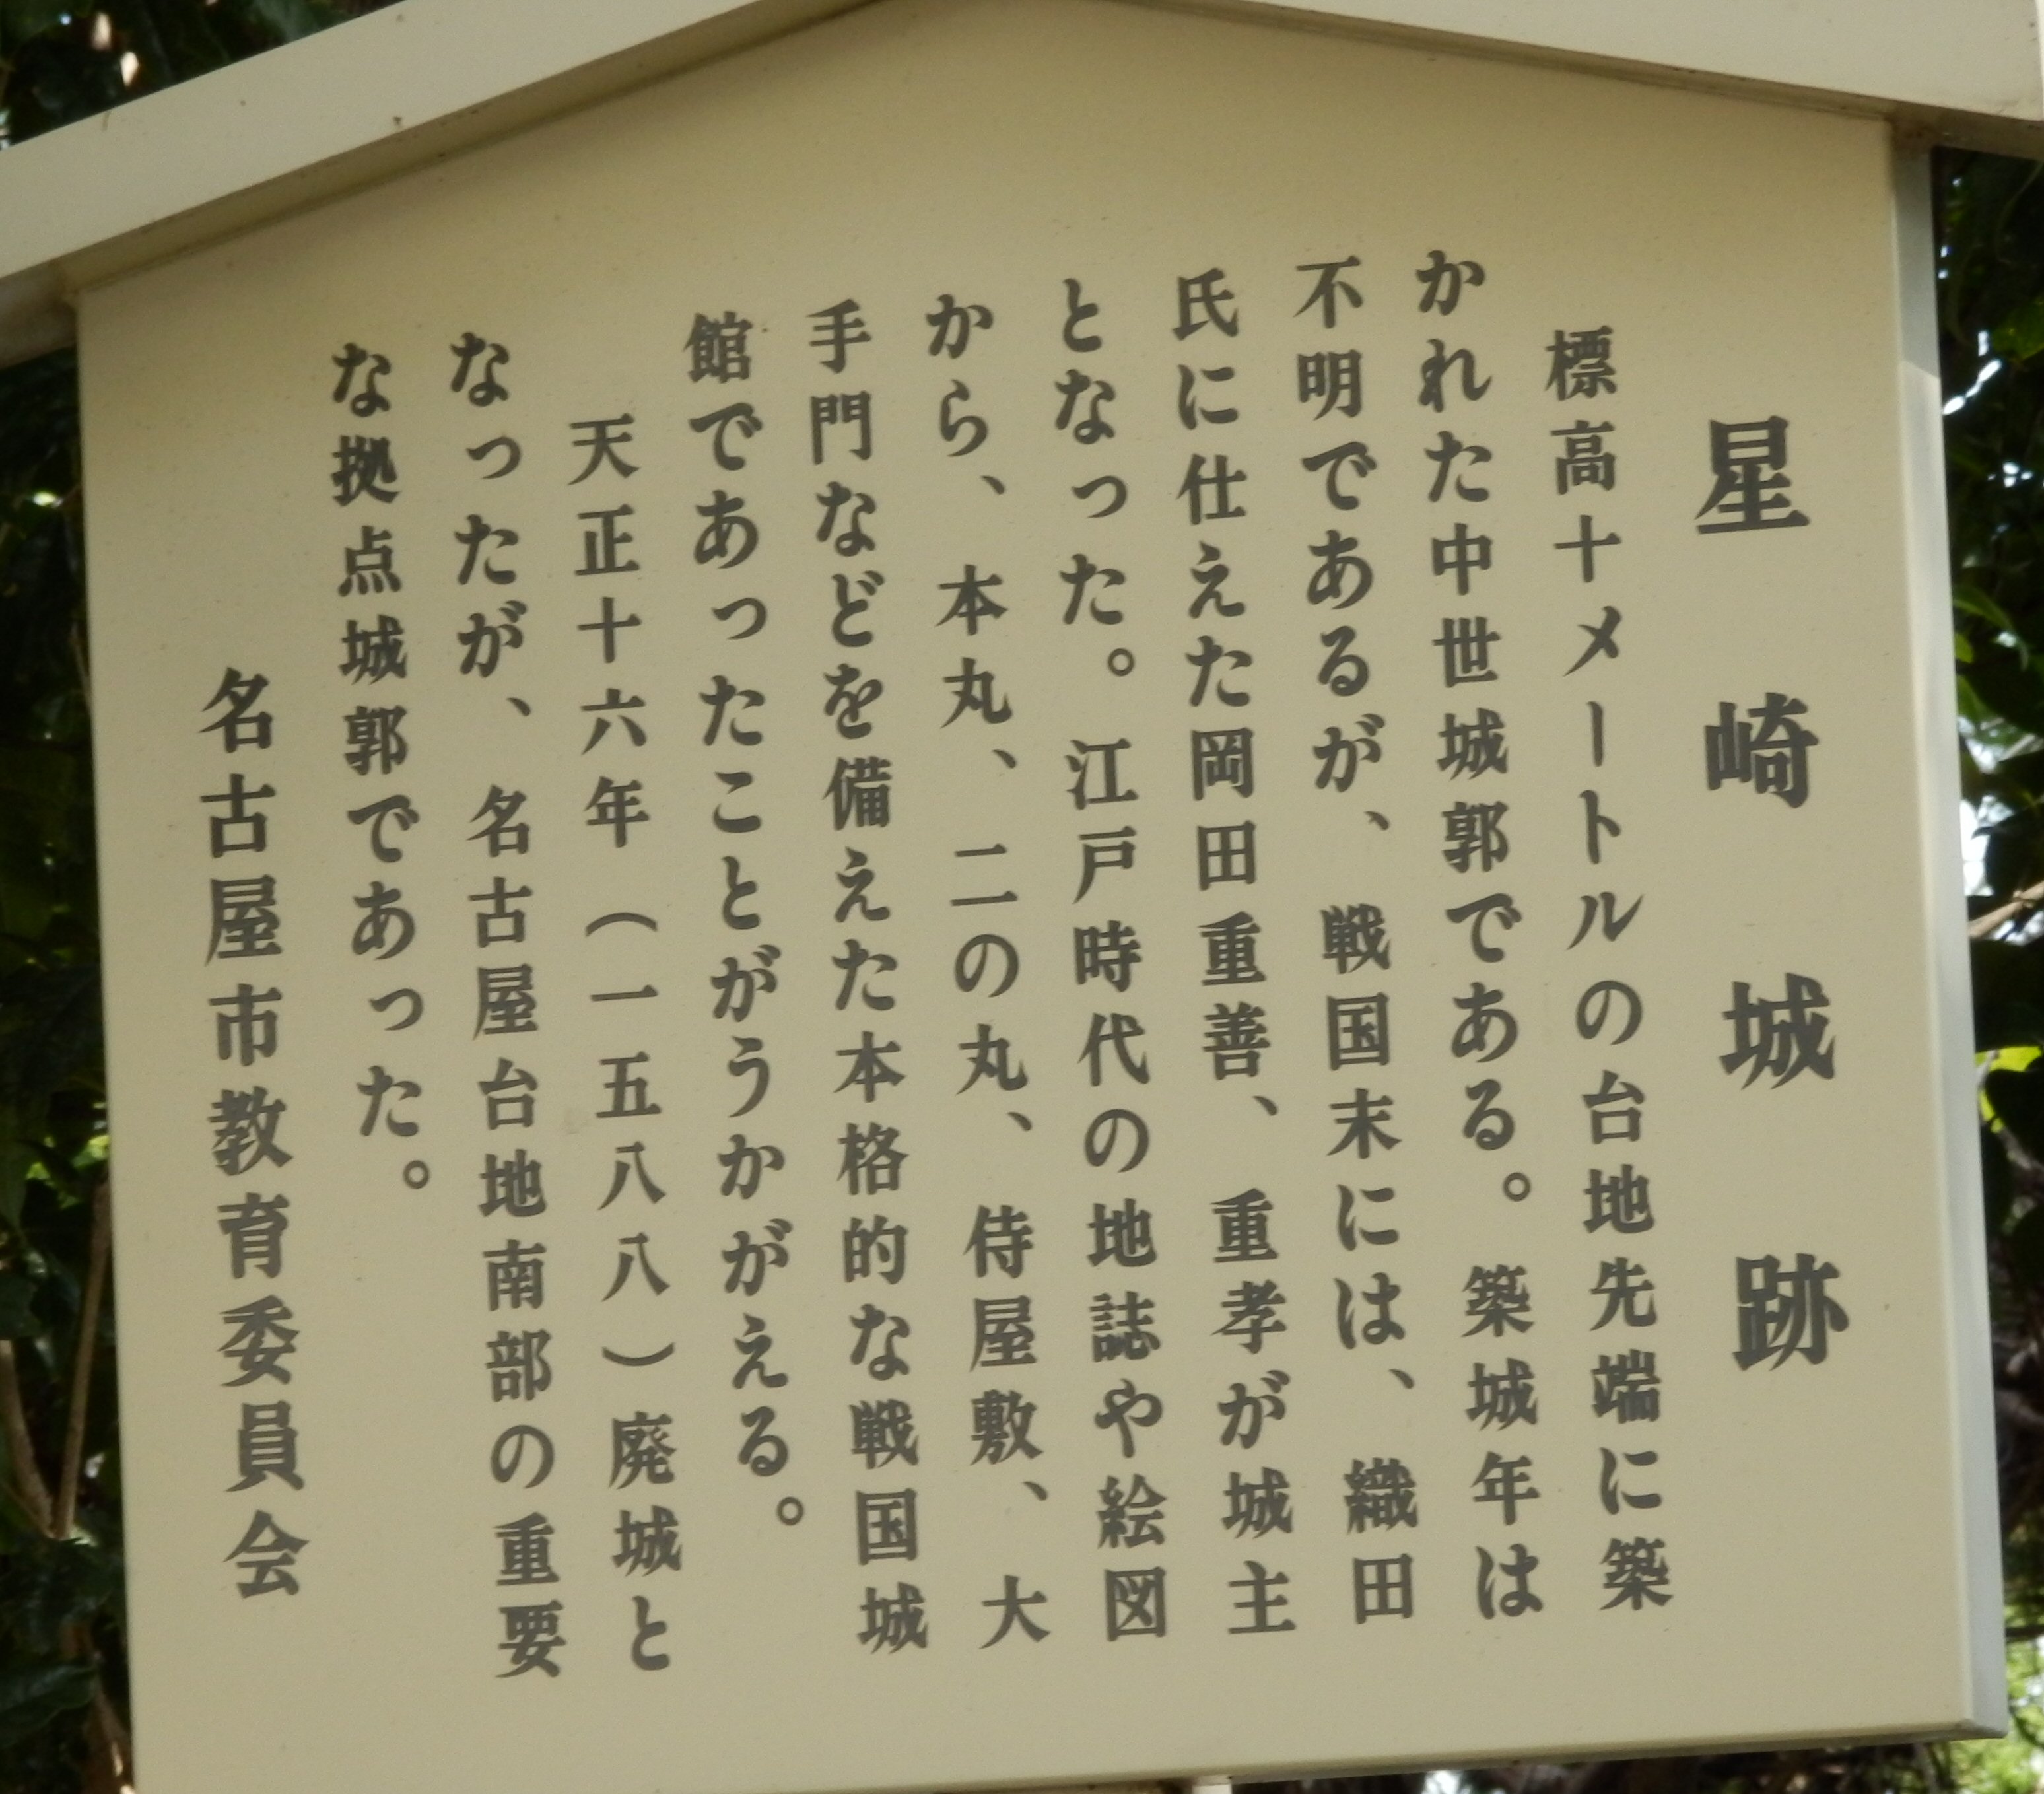 星崎城跡
標高十メートルの台地先端に築
かれた中世城郭である。築城年は
不明であるが、戦国末には、織田
氏に仕えた岡田重善、重孝が城主
となった。江戸時代の地誌や絵図
から、本丸、二の丸、侍屋敷、大
手門などを備えた本格的な戦国城
館であったことがうかがえる。
天正十六年（一五八八）廃城と
なったが、名古屋台地南部の重要
な拠点城郭であった。
名古屋市教育委員会